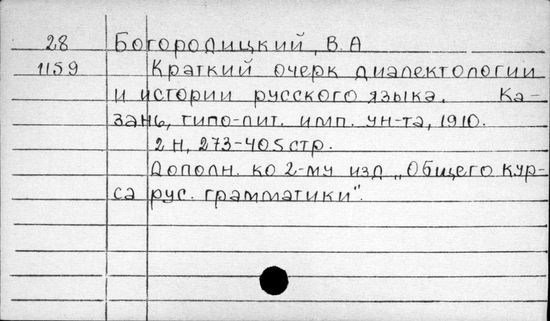 28 Богородицкий, В. А
1159 Краткий очерк диалектологии
и истории русского языка. Ка-
зань, типо-лит. имп. ун-та, 1910.
2 н, 273-405 стр.
Дополн. ко 2-му изд „Общего кур-
са рус. грамматики".